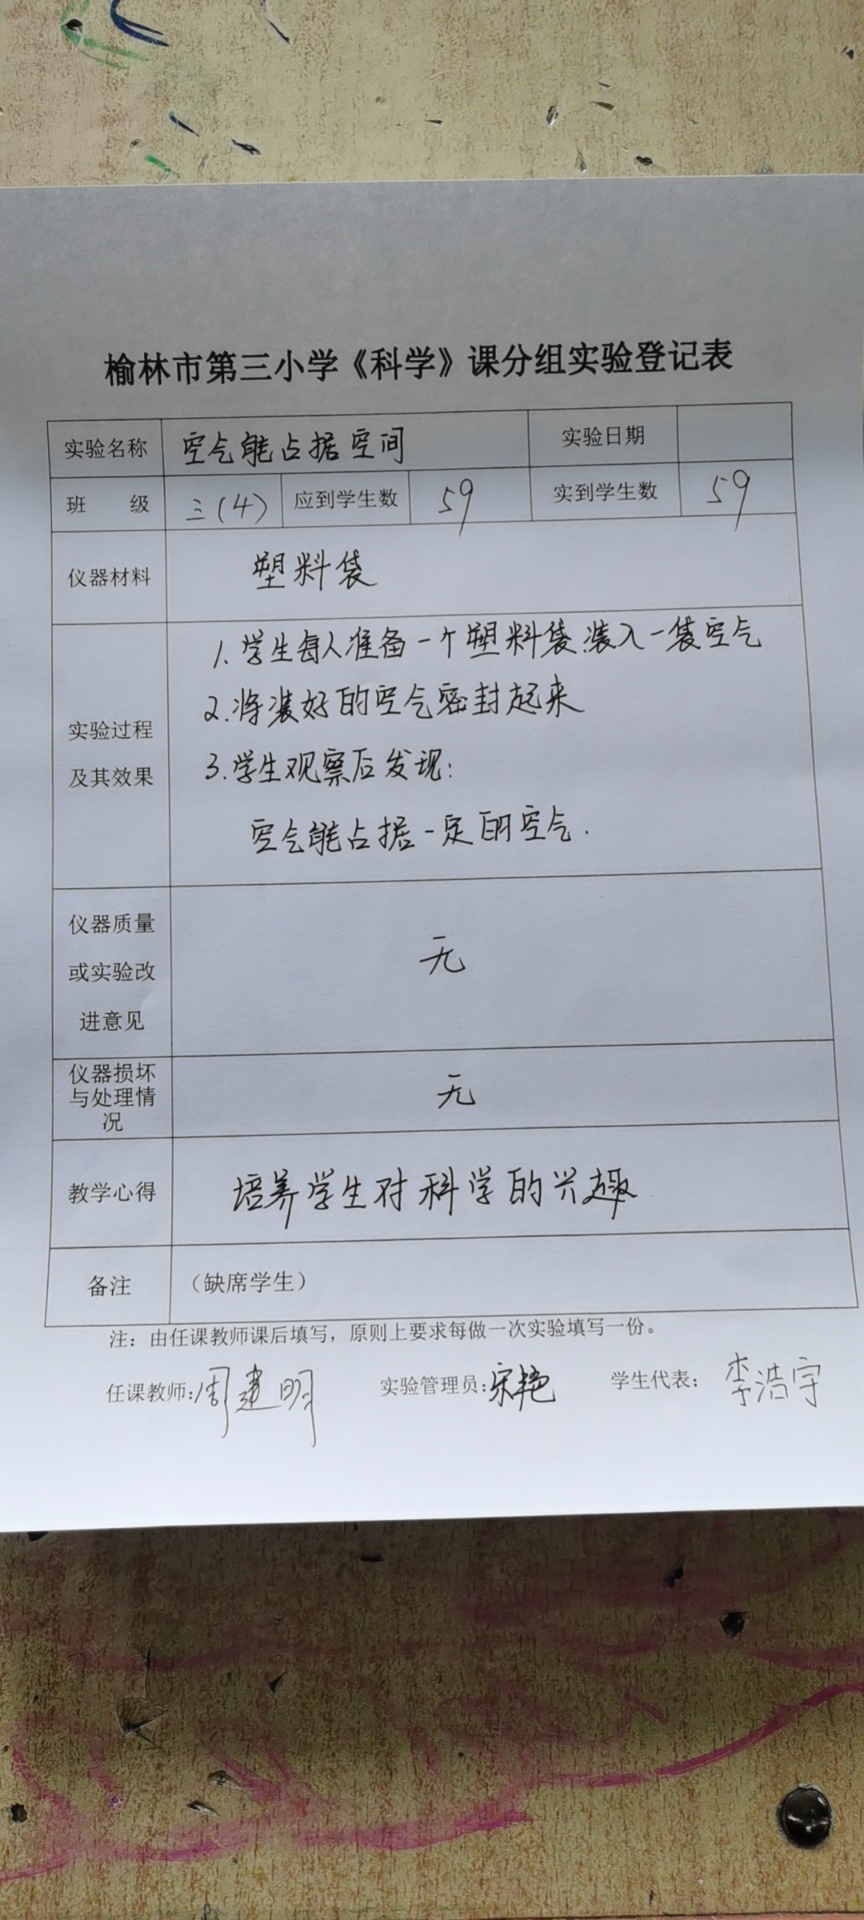 榆林市第三小学《科学》课分组实验登记表
实验名称 空气能占据空间 实验日期
班 级 三(4) 应到学生数 59 实到学生数 59
仪器材料 塑料袋
实验过程
及其效果
1.学生每人准备一个塑料袋.装入一袋空气
2.将装好的空气密封起来
3.学生观察后发现:
空气能占据一定的空气.
仪器质量
或实验改
进意见
无
仪器损坏
与处理情
况
无
教学心得 培养学生对科学的兴趣
备注 (缺席学生)
注:由任课教师课后填写,原则上要求每做一次实验填写一份。
任课教师:周建明 实验管理员:宋艳 学生代表:李浩宇